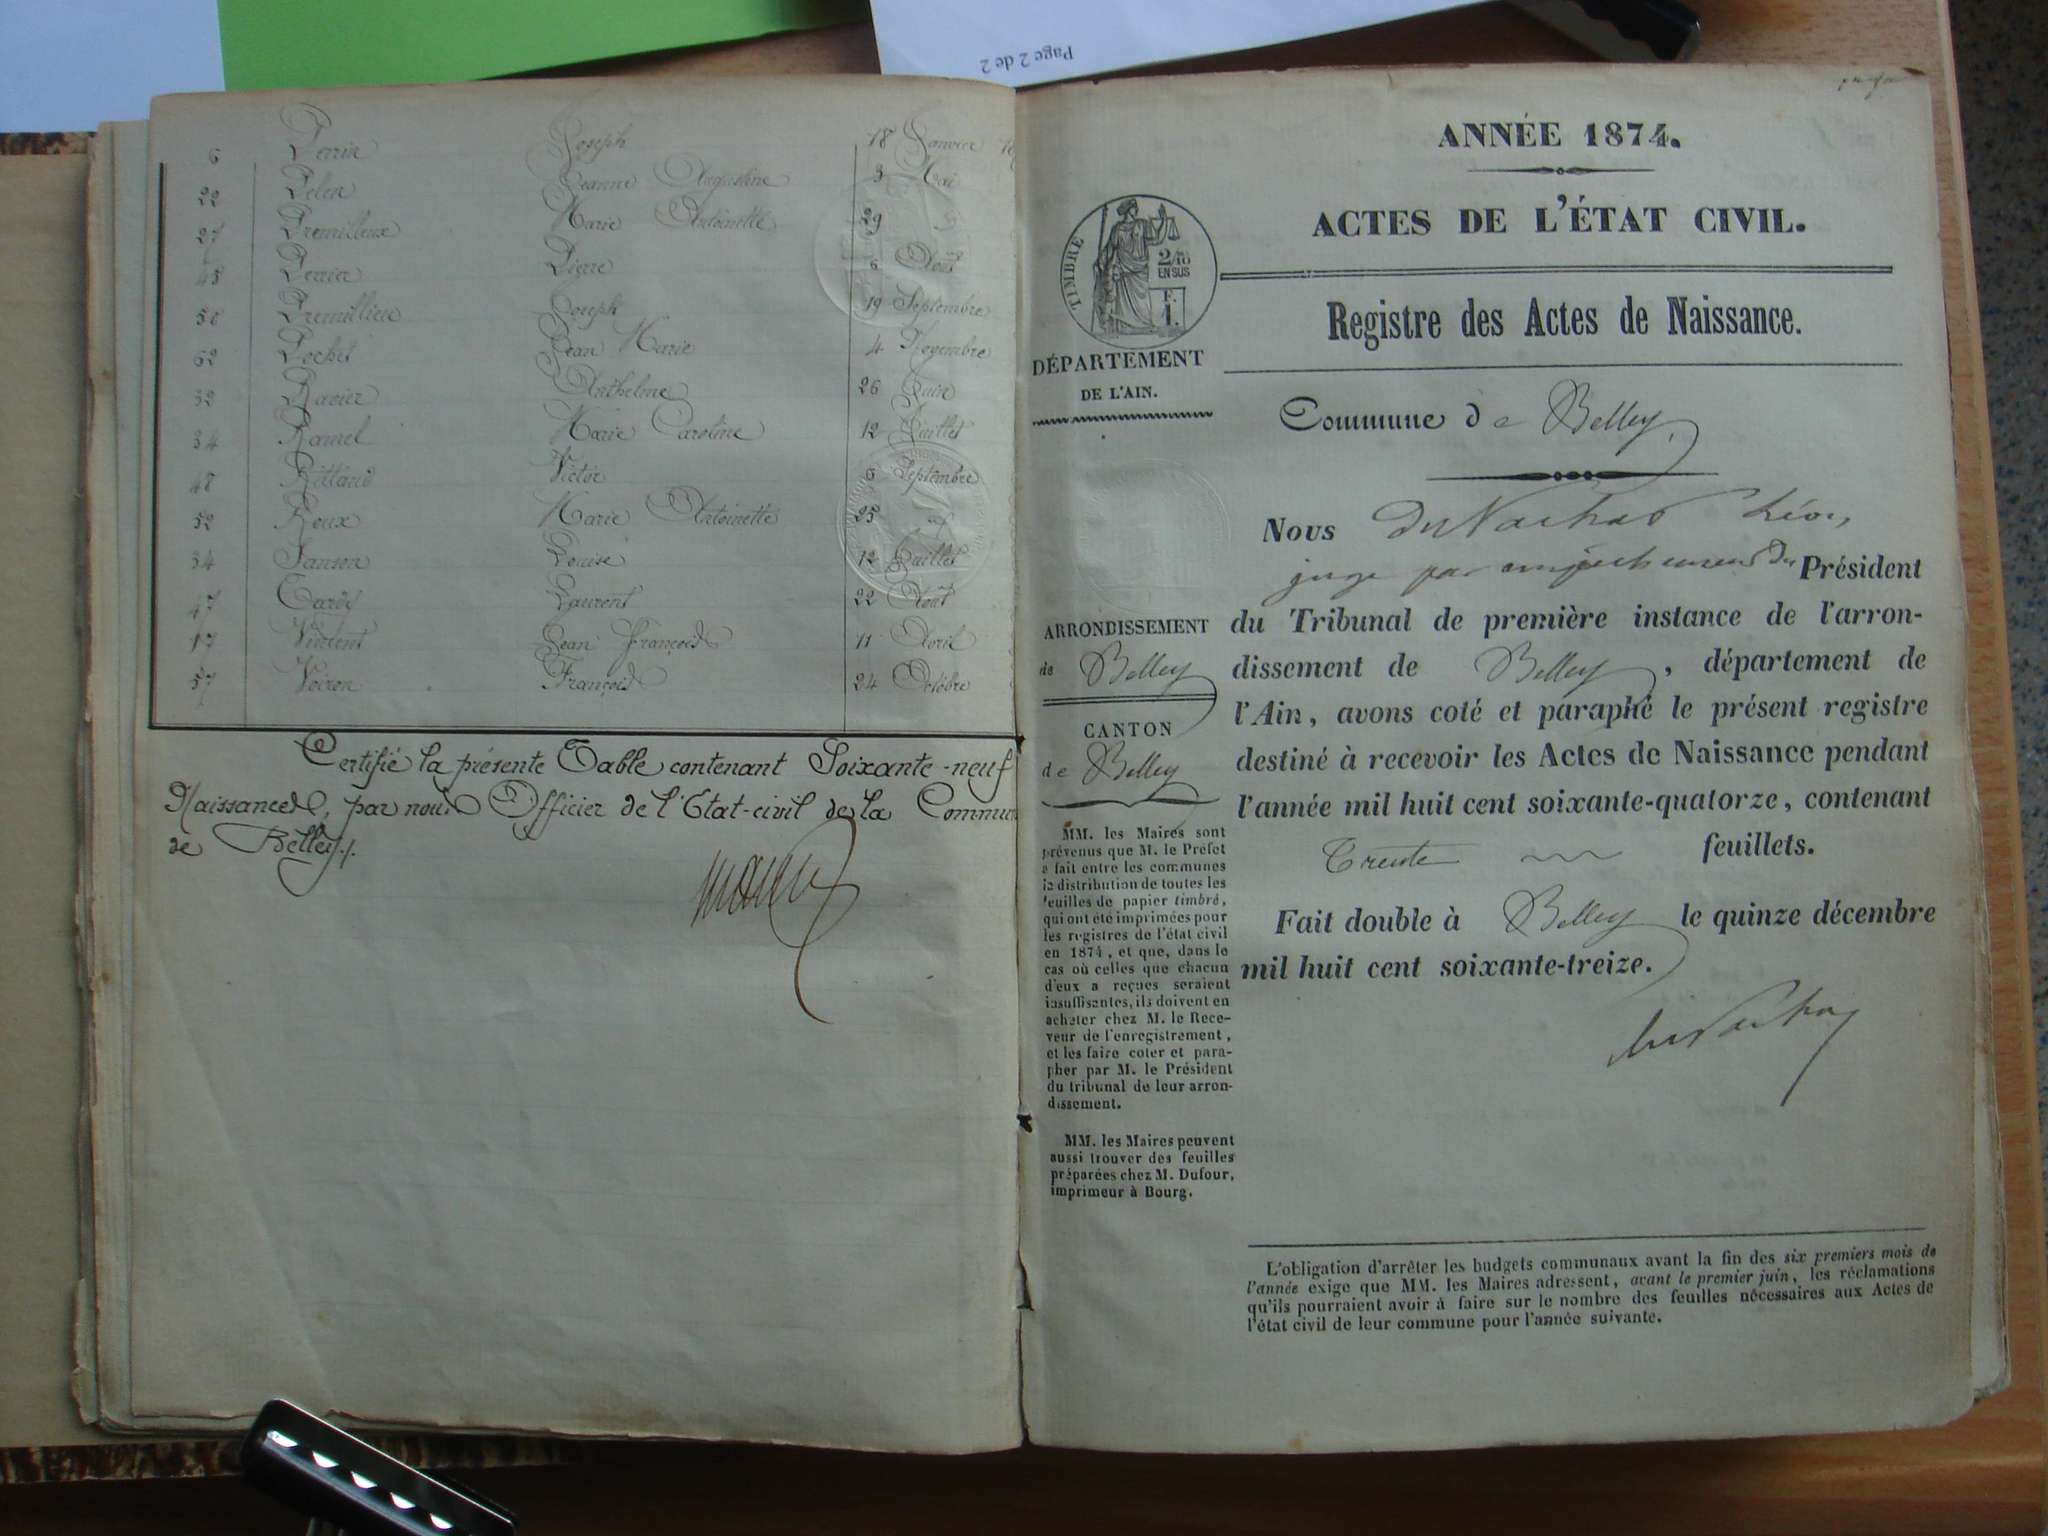 Page 2 de 2
6 Perrin Joseph 18 Janvier
22 Pelen Jeanne Augustine 3 Mai
27 Premilleux Marie Antoinette 29
45 Perrier Pierre 6 Août
50 Premillieu Joseph 19 Septembre
62 Pochet Jean Marie 4 Novembre
32 Ravier Anthelme 26 Juin
34 Ramel Marie Caroline 12 Juillet
48 Victor 6 Septembre
52 Roux Marie Antoinette 25
34 Sanson Louise 12 Juillet
47 Tardy Laurent 22 Août
17 Vincent Jean François 11 Avril
57 Voiron François 24 Octobre
Certifié la présente Table contenant Soixante-neuf
Naissances, par nous Officier de l'Etat-civil de la Commun
de Belley.
ANNÉE 1874.
ACTES DE L'ÉTAT CIVIL.
TIMBRE
2/10
EN SUS
F.
1.
Registre des Actes de Naissance.
DÉPARTEMENT
DE L'AIN.
Commune de Belley,
Nous Léon,
juge par empêchement du Président
du Tribunal de première instance de l'arron-
dissement de Belley, département de
l'Ain, avons coté et paraphé le présent registre
destiné à recevoir les Actes de Naissance pendant
l'année mil huit cent soixante-quatorze, contenant
Trente feuillets.
Fait double à Belley le quinze décembre
mil huit cent soixante-treize.
ARRONDISSEMENT
de Belley
CANTON
de Belley
MM. les Maires sont
prévenus que M. le Préfet
a fait entre les communes
la distribution de toutes les
feuilles de papier timbré,
qui ont été imprimées pour
les registres de l'état civil
en 1874, et que, dans le
cas où celles que chacun
d'eux a reçues seraient
insuffisantes, ils doivent en
acheter chez M. le Rece-
veur de l'enregistrement,
et les faire coter et para-
pher par M. le Président
du tribunal de leur arron-
dissement.
MM. les Maires peuvent
aussi trouver des feuilles
préparées chez M. Dufour,
imprimeur à Bourg.
L'obligation d'arrêter les budgets communaux avant la fin des six premiers mois de
l'année exige que MM. les Maires adressent, avant le premier juin, les réclamations
qu'ils pourraient avoir à faire sur le nombre des feuilles nécessaires aux Actes de
l'état civil de leur commune pour l'année suivante.